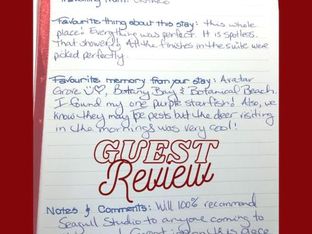 Travelling from:
Favourite thing about this stay: this whole
place! Everything was perfect. It is spotless.
That shower!! All the finishes in the suite were
picked perfectly.
Favourite memory from your stay: Avatar
Grove, Botany Bay & Botanical Beach.
I found my one purple starfish! Also, we
know they may be pests but the deer visiting
in the mornings was very cool!
GUEST
Review
Notes & Comments: Will 100% recommend
Seagull Studio to anyone coming to